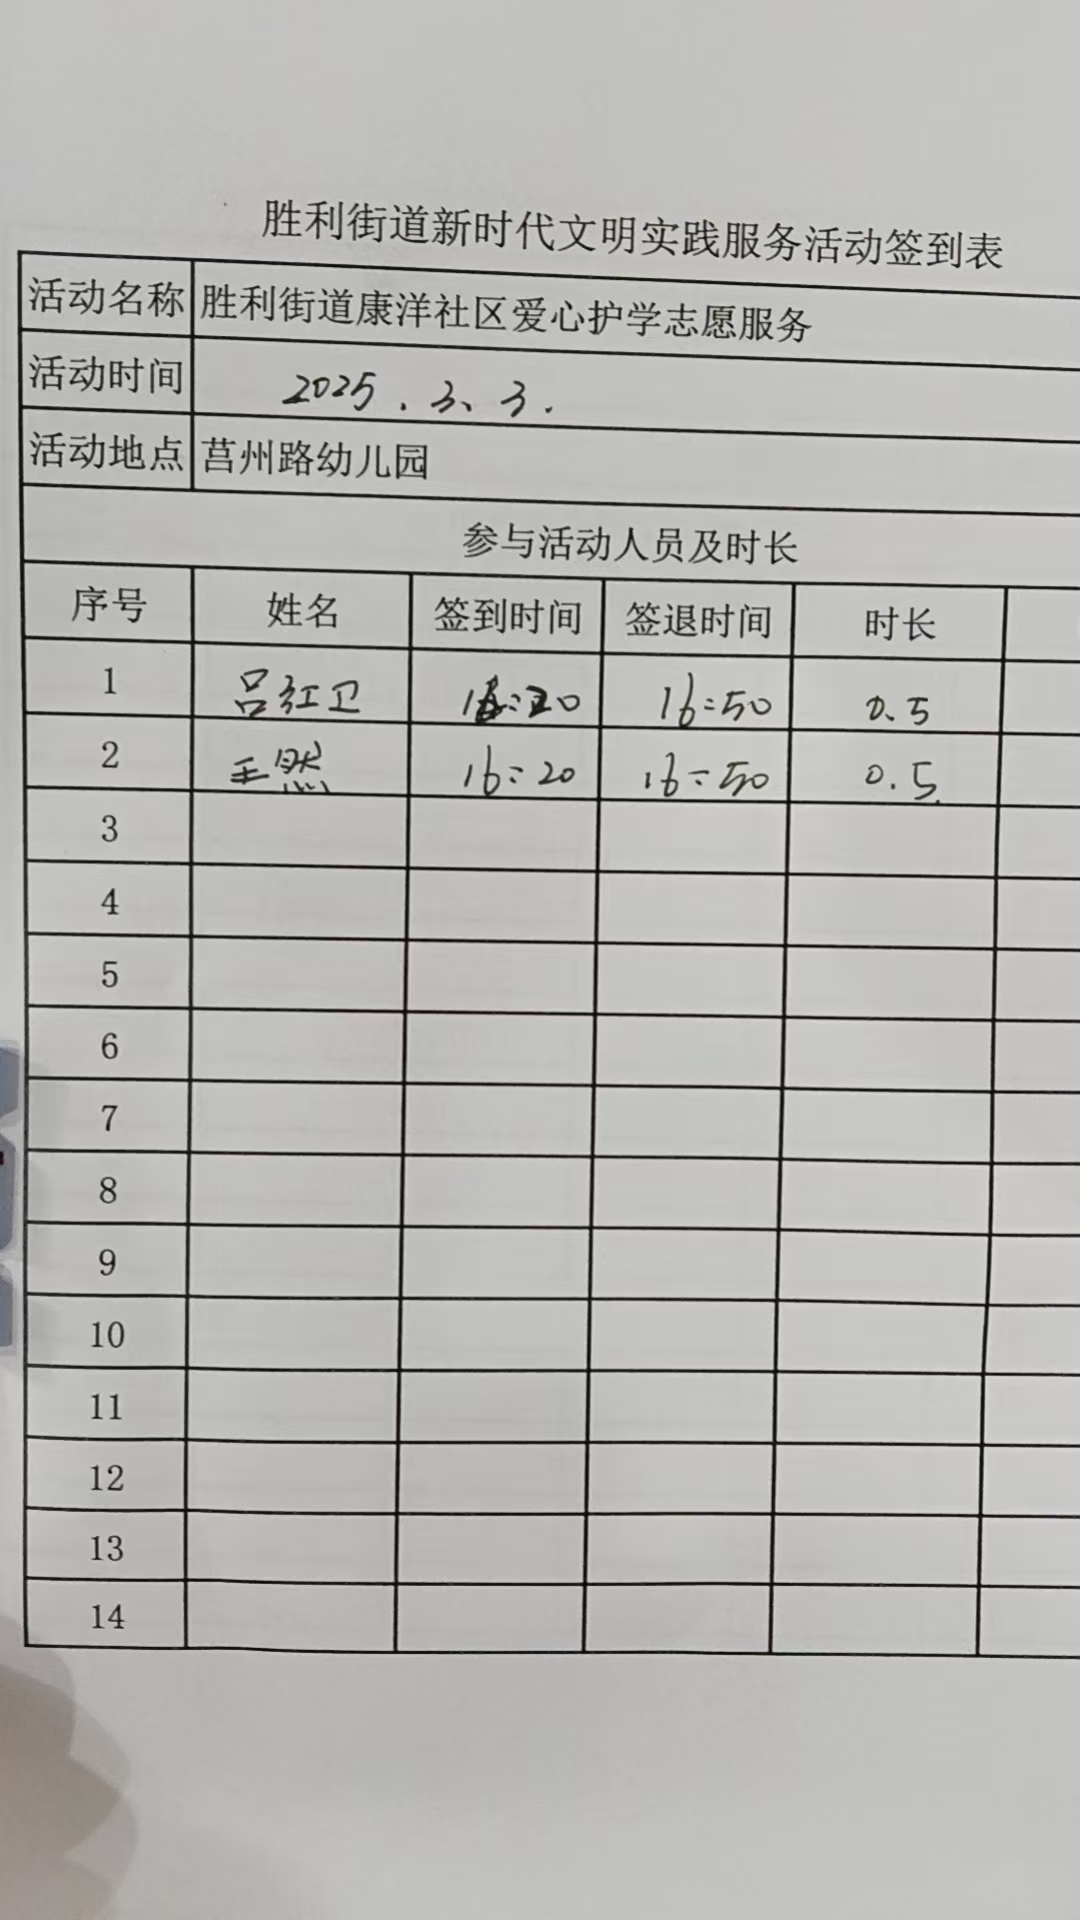 胜利街道新时代文明实践服务活动签到表
活动名称 胜利街道康洋社区爱心护学志愿服务
活动时间 2025.3、3.
活动地点 莒州路幼儿园
参与活动人员及时长
序号 姓名 签到时间 签退时间 时长
1 吕红卫 16:20 16:50 0.5
2 王然 16:20 16:50 0.5
3
4
5
6
7
8
9
10
11
12
13
14